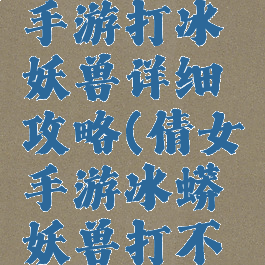 手游打冰
妖兽详细
攻略(倩女
手游冰蟒
妖兽打不